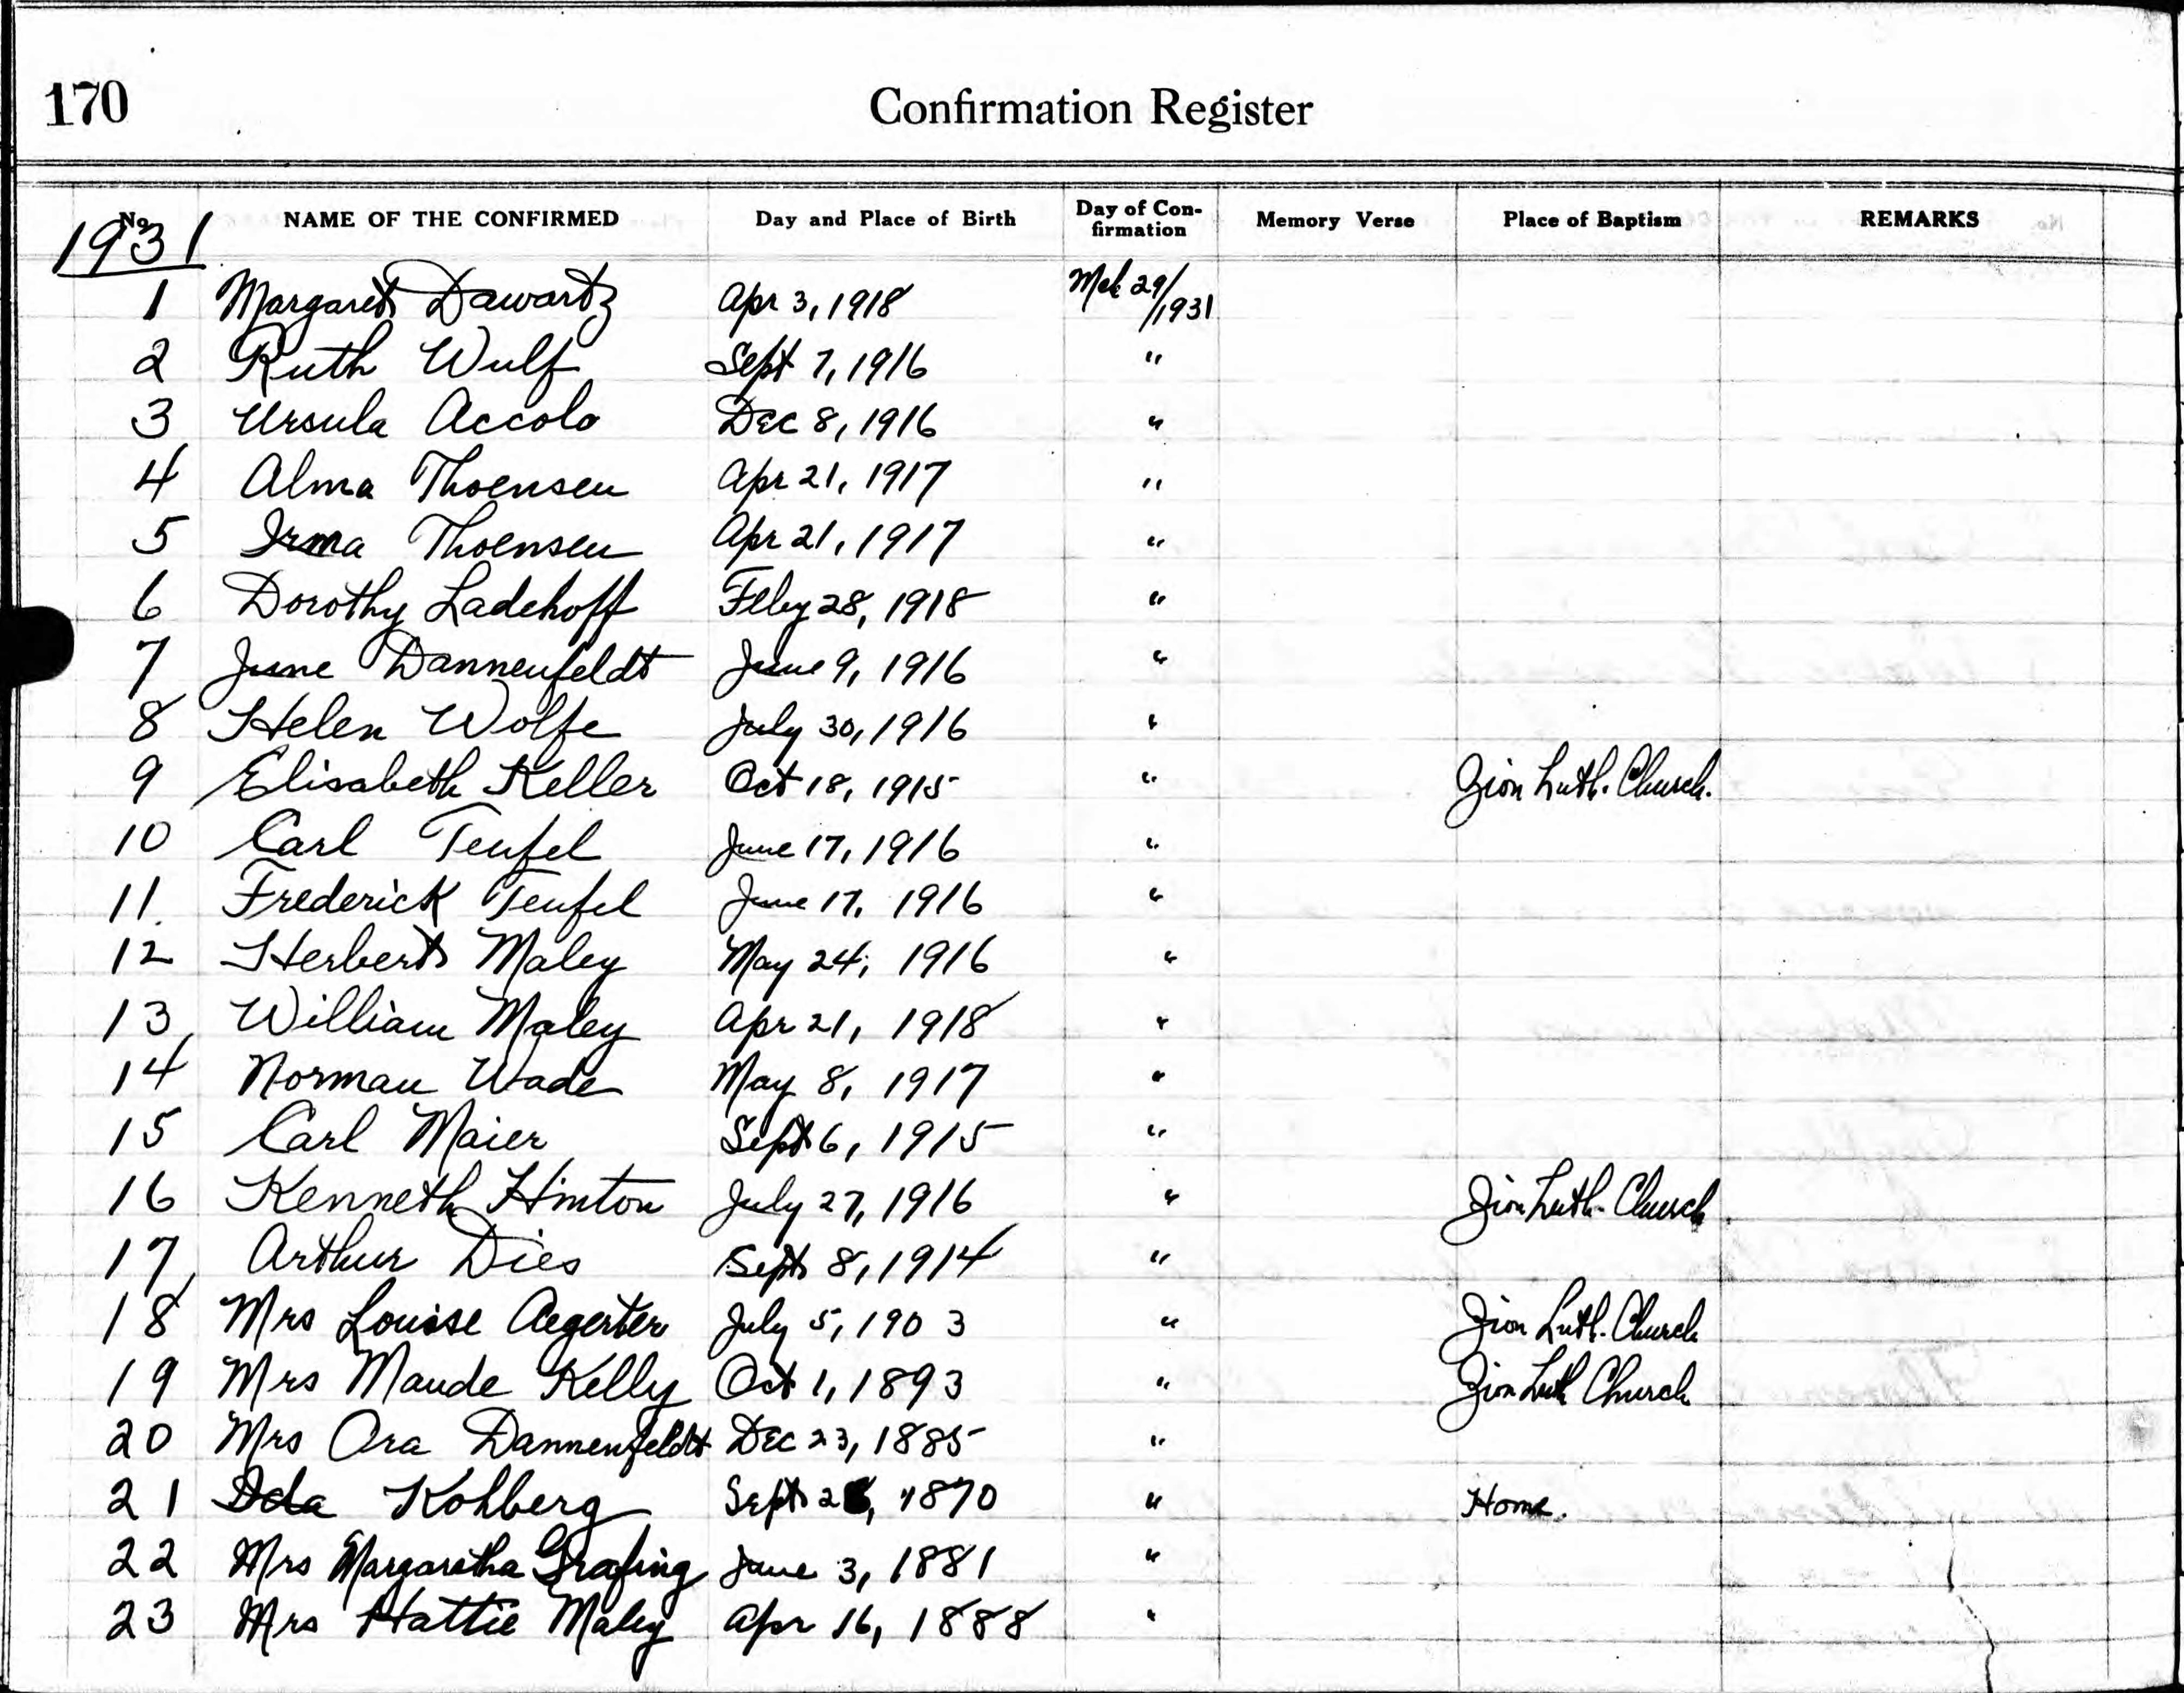 170
Confirmation Register
No. NAME OF THE CONFIRMED Day and Place of Birth Day of Confirmation Memory Verse Place of Baptism REMARKS
1931
1 Margaret Dawartz Apr 3, 1918 Mch 29/1931
2 Ruth Wulf Sept 7, 1916 "
3 Ursula Accola Dec 8, 1916 "
4 Alma Thoensen Apr 21, 1917 "
5 Irma Thoensen Apr 21, 1917 "
6 Dorothy Ladehoff Feby 28, 1918 "
7 June Dannenfeldt June 9, 1916 "
8 Helen Wolfe July 30, 1916 "
9 Elisabeth Keller Oct 18, 1915 " Zion Luth. Church.
10 Carl Teufel June 17, 1916 "
11. Frederick Teufel June 17, 1916 "
12 Herbert Maley May 24, 1916 "
13 William Maley Apr 21, 1918 "
14 Norman Wade May 8, 1917 "
15 Carl Maier Sept 6, 1915 "
16 Kenneth Hinton July 27, 1916 " Zion Luth. Church
17 Arthur Dies Sept 8, 1914 "
18 Mrs Louise Aegerter July 5, 1903 " Zion Luth. Church
19 Mrs Maude Kelly Oct 1, 1893 " Zion Luth Church
20 Mrs Ora Dannenfeldt Dec 23, 1885 "
21 Ida Kohlberg Sept 1870 " Home.
22 Mrs Margaretha Grafing June 3, 1881 "
23 Mrs Hattie Maley Apr 16, 1888 "